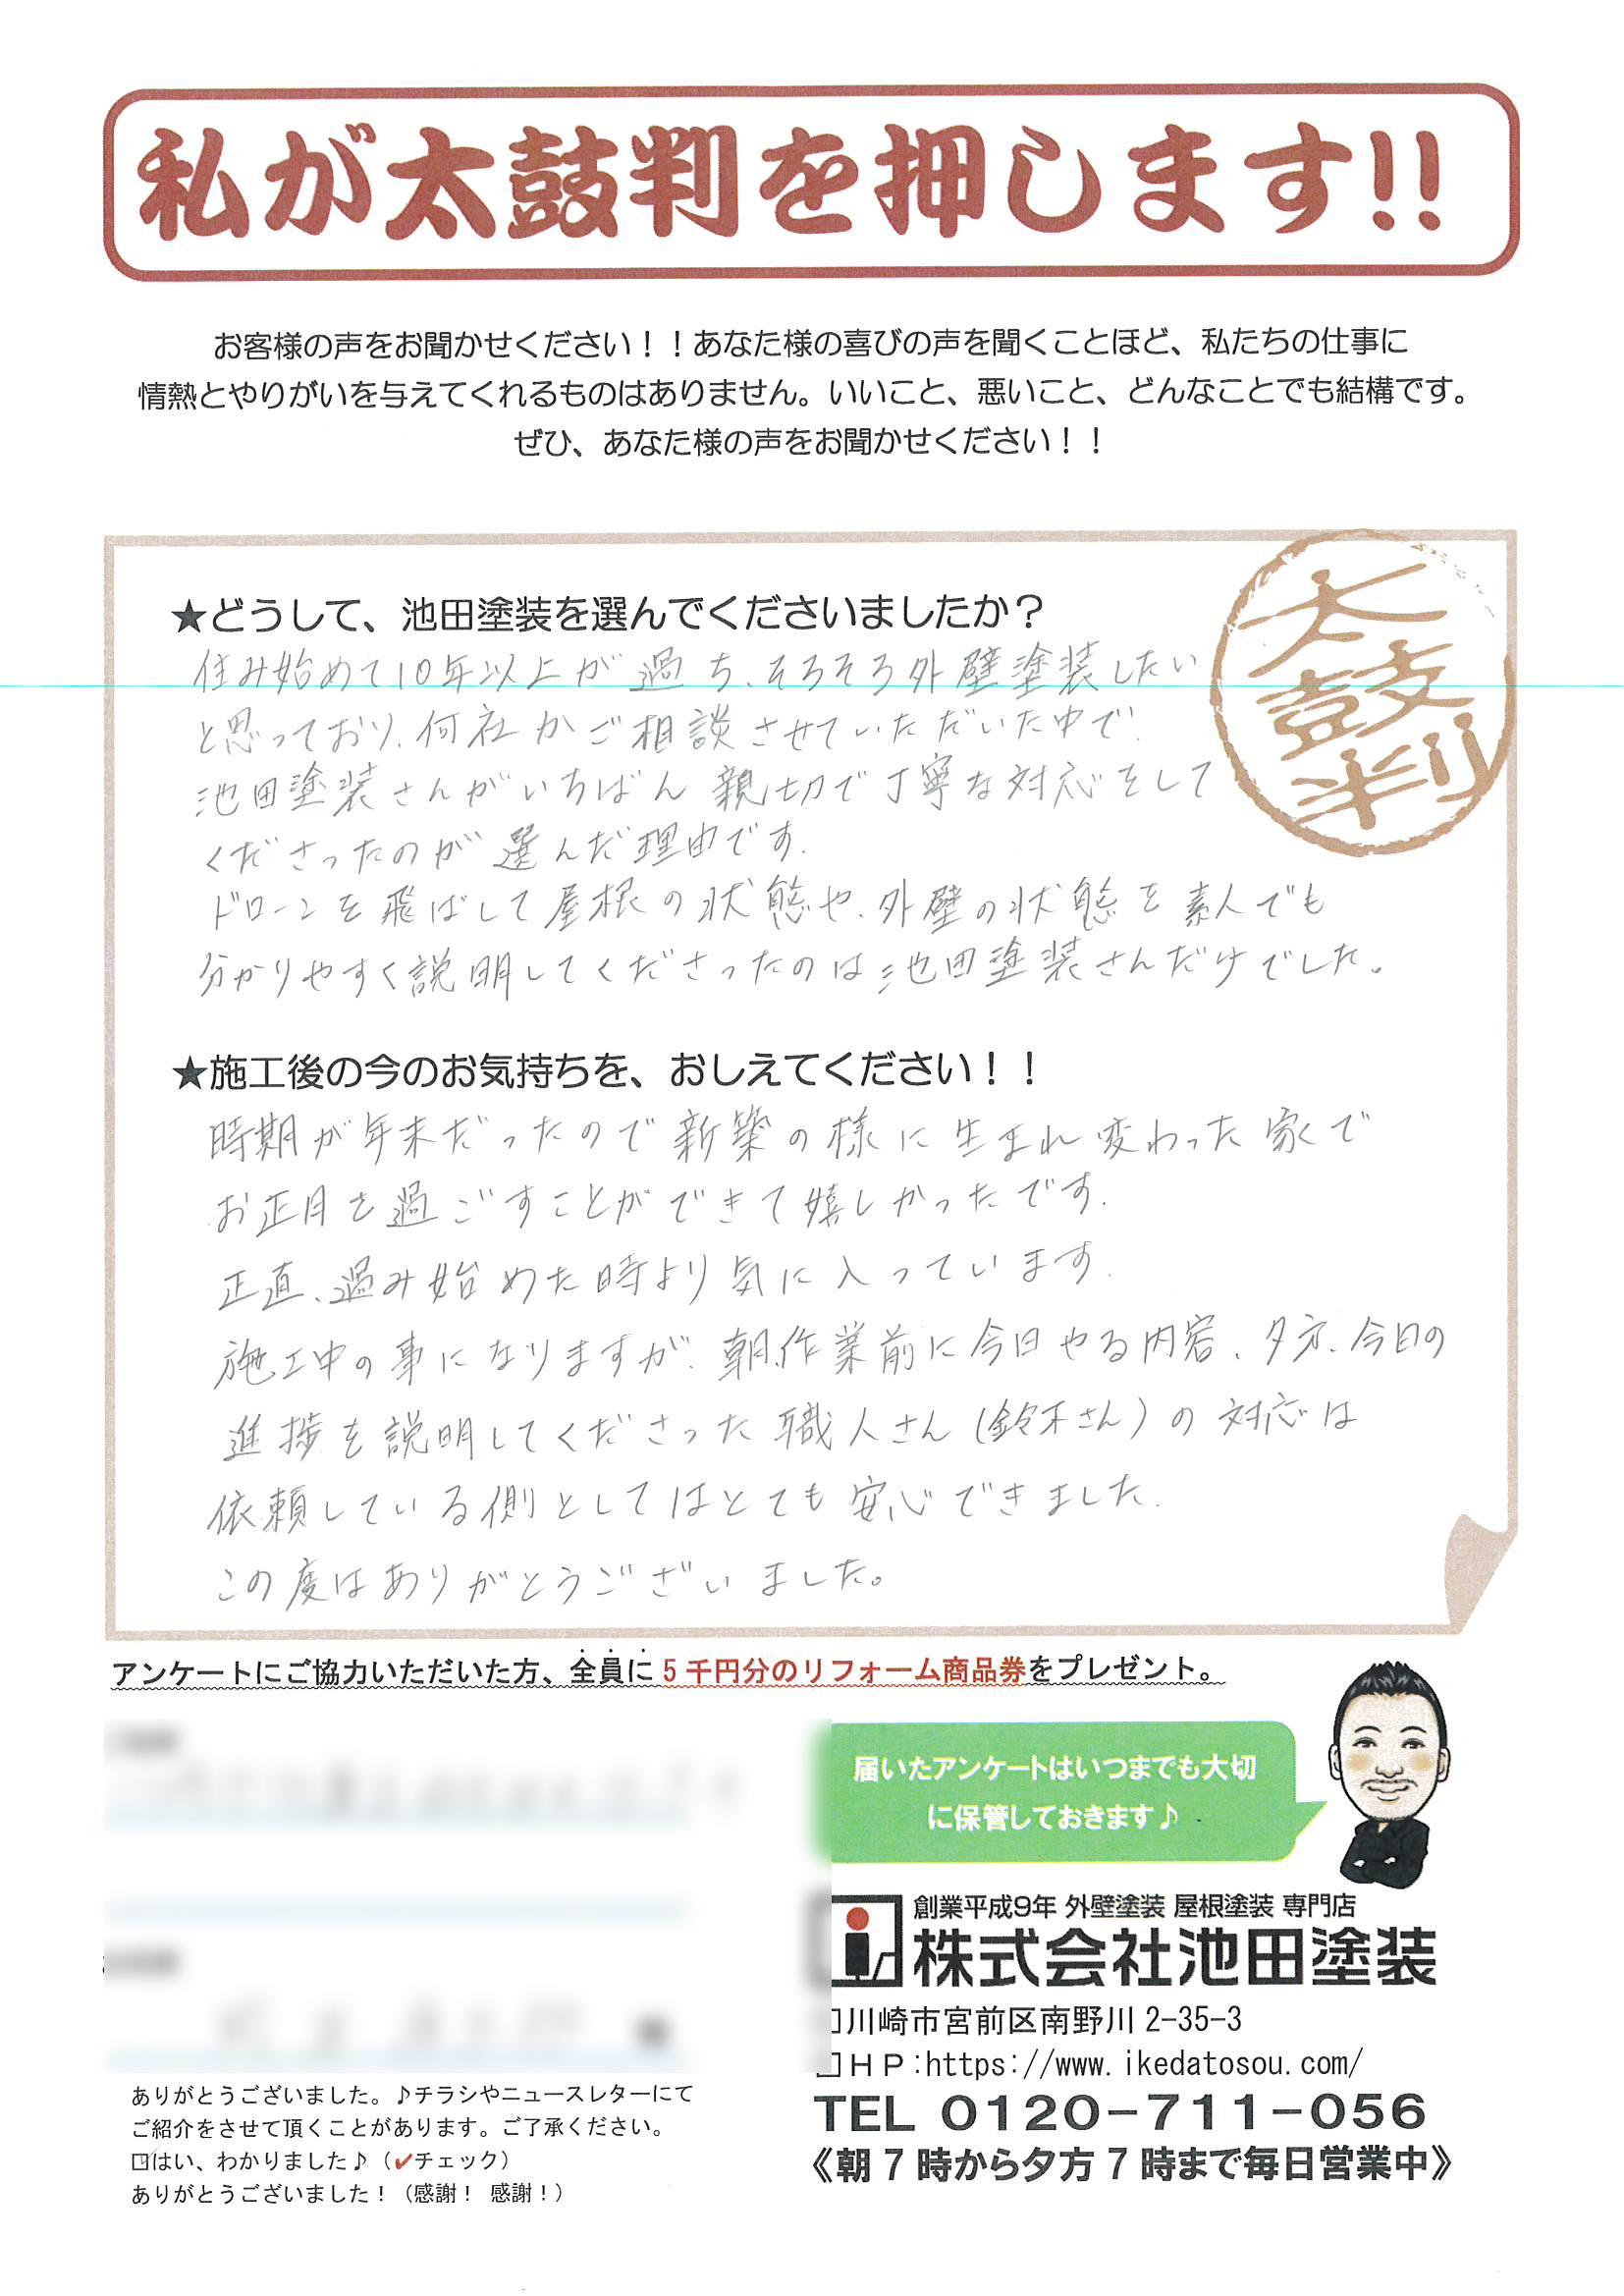 私が太鼓判を押します!!
お客様の声をお聞かせください！！あなた様の喜びの声を聞くことほど、私たちの仕事に
情熱とやりがいを与えてくれるものはありません。いいこと、悪いこと、どんなことでも結構です。
ぜひ、あなた様の声をお聞かせください！！
太鼓判
★どうして、池田塗装を選んでくださいましたか？
住み始めて10年以上が過ち、そろそろ外壁塗装したい
と思っており、何社かご相談させていただいた中で、
池田塗装さんがいちばん親切で丁寧な対応をして
くださったのが選んだ理由です。
ドローンを飛ばして屋根の状態や、外壁の状態を素人でも
分かりやすく説明してくださったのは池田塗装さんだけでした。
★施工後の今のお気持ちを、おしえてください！！
時期が年末だったので新築の様に生まれ変わった家で
お正月を過ごすことができて嬉しかったです。
正直、過み始めた時より気に入っています。
施工中の事になりますが、朝、作業前に今日やる内容、夕方、今日の
進捗を説明してくださった職人さん（鈴木さん）の対応は
依頼している側としてはとても安心できました。
この度はありがとうございました。
アンケートにご協力いただいた方、全員に5千円分のリフォーム商品券をプレゼント。
届いたアンケートはいつまでも大切
に保管しておきます♪
創業平成9年 外壁塗装 屋根塗装 専門店
株式会社池田塗装
□川崎市宮前区南野川2-35-3
□ＨＰ:https://www.ikedatosou.com/
TEL 0120-711-056
《朝7時から夕方7時まで毎日営業中》
ありがとうございました。♪チラシやニュースレターにて
ご紹介をさせて頂くことがあります。ご了承ください。
☑はい、わかりました♪（✔チェック）
ありがとうございました！（感謝！ 感謝！）